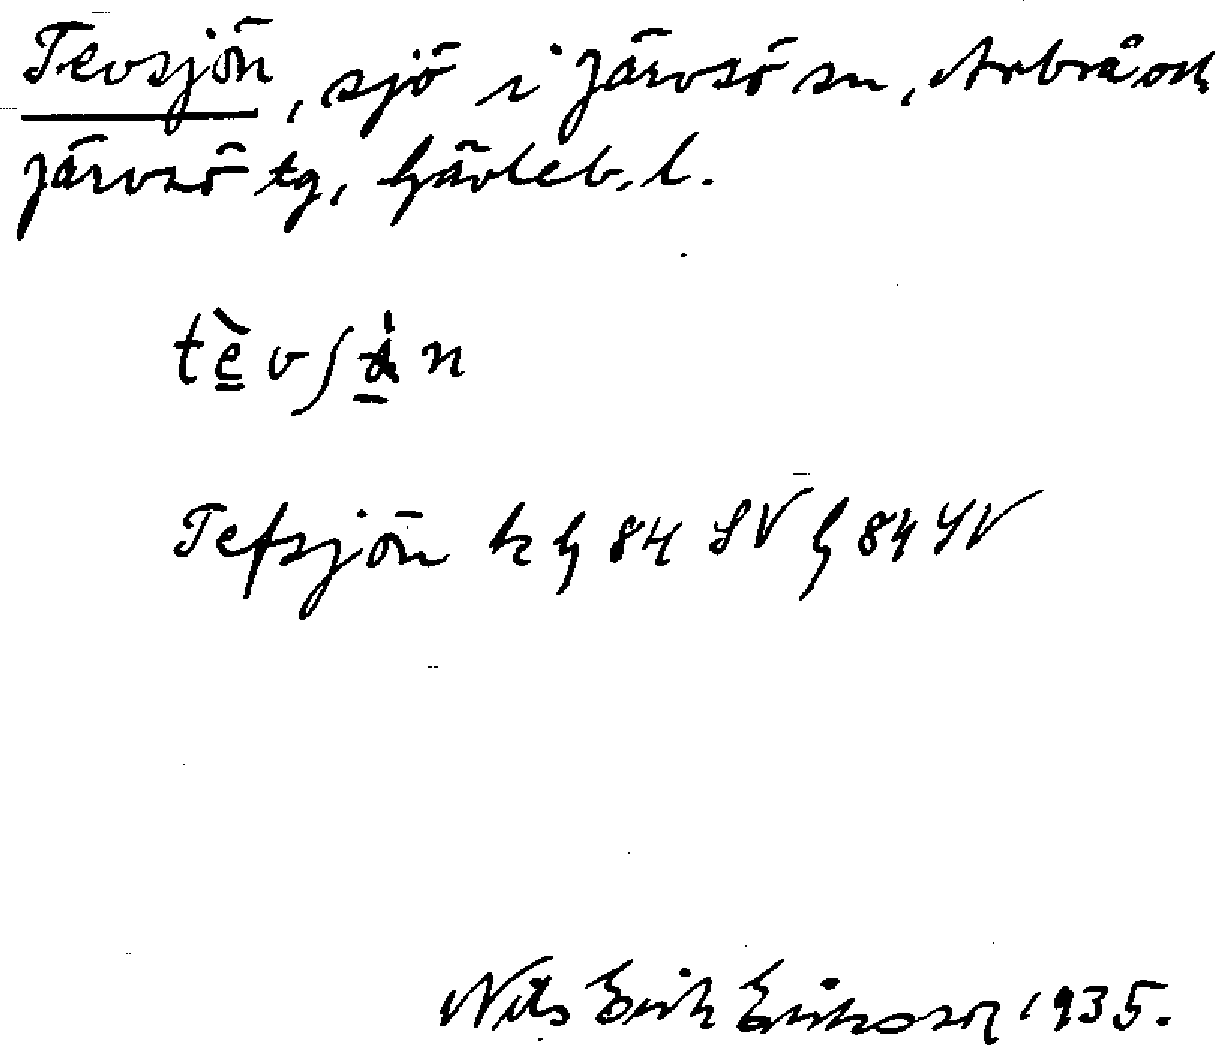 Tevsjön, sjö i Järvsö sn, Arbrå och
Järvsö tg, Gävleb. l.
Tefsjön k G 84 SV G 84 SV
Nils Erik Eriksson 1935.